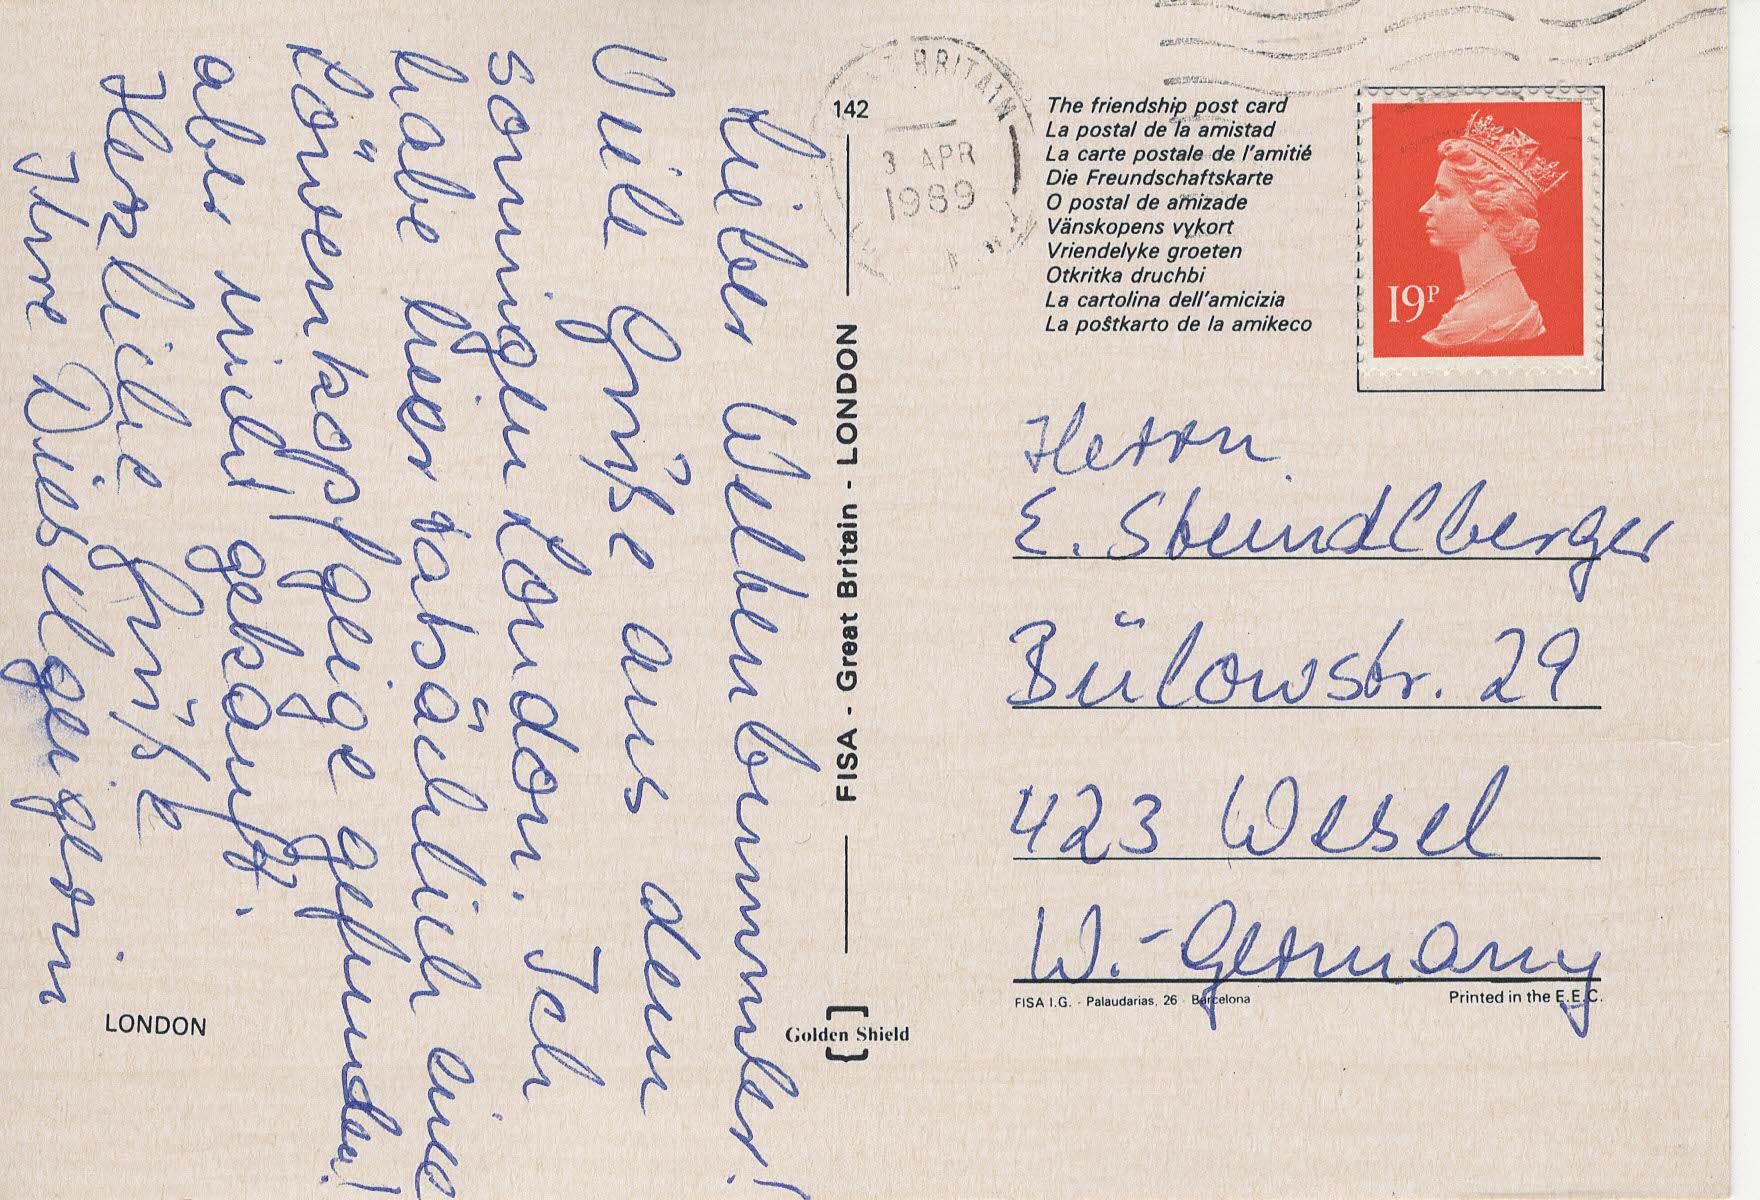 Lieber Weltenbummler!
Viele Grüße aus dem
sonnigen London. Ich
habe hier tatsächlich eine
Löwenkopfgeige gefunden!
aber nicht gekauft.
Herzliche Grüße
Ihre Wieselgeigerin
LONDON
142
FISA - Great Britain - LONDON
Golden Shield
BRITAIN
3 APR
1989
The friendship post card
La postal de la amistad
La carte postale de l'amitié
Die Freundschaftskarte
O postal de amizade
Vänskopens vykort
Vriendelyke groeten
Otkritka druchbi
La cartolina dell'amicizia
La poŝtkarto de la amikeco
19P
Herrn
E. Steindlberger
Bülowstr. 29
423 Wesel
W.-Germany
FISA I.G. - Palaudarias, 26 - Barcelona
Printed in the E.E.C.